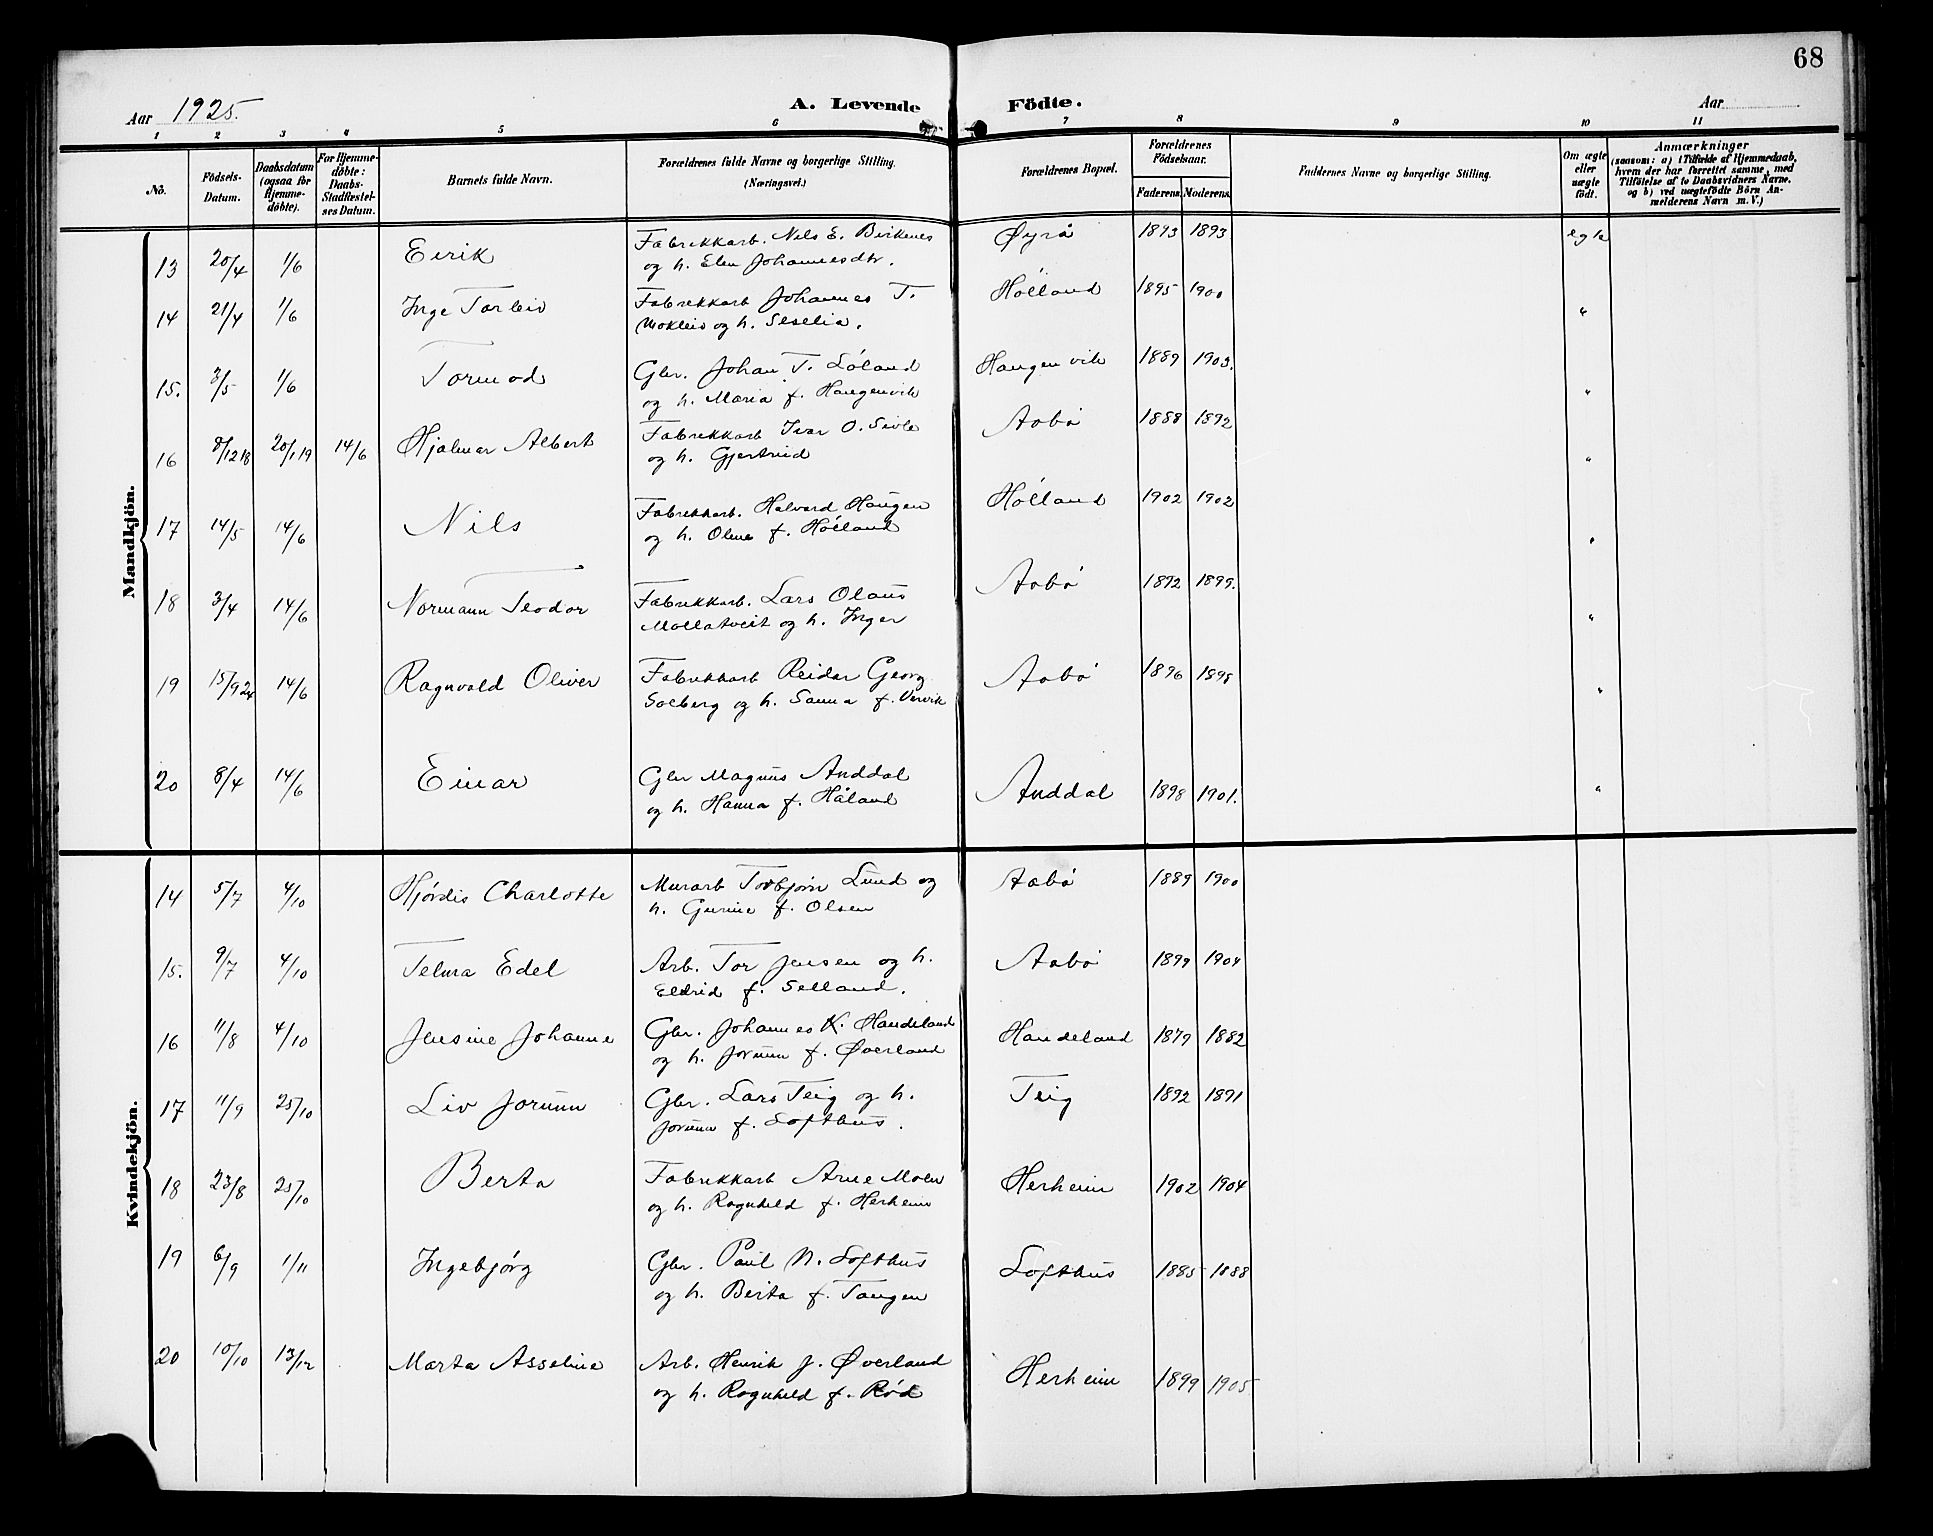 68
Aar 1925.
A. Levende Födte.
Aar
1 2 3 4 5 6 7 8 9 10 11
No.
Födsels-Datum.
Daabsdatum (ogsaa for Hjemme-döbte).
For Hjemme-döbte: Daabs-Stadfæstel-ses Datum.
Barnets fulde Navn.
Forældrenes fulde Navne og borgerlige Stilling. (Næringsvei.)
Forældrenes Bopæl.
Forældrenes Födselsaar.
Faderens. Moderens.
Faddernes Navne og borgerlige Stilling.
Om ægte eller uægte födt.
Anmærkninger
(saasom: a) i Tilfælde af Hjemmedaab,
hvem der har forrettet samme, med
Tilföielse af to Daabsvidners Navne.
og b) ved uægtefödte Börn An-
melderens Navn m. V.)
Mandkjön.
13 20/4 1/6 Eirik Fabrikkarb. Nils E. Birkenes Øyrå 1893 1893 egte
og h. Elen Johannesdtr.
14 21/4 1/6 Inge Torleiv Fabrikkarb Johannes T. Hólland 1895 1900 "
Mokleiv og h. Seselia.
15. 3/5 1/6 Tormod Gbr. Johan T. Lóland Haugenvik 1889 1903. "
og h. Maria f. Haugenvik
16 8/12 18 20/1 19 14/6 Hjalmar Albert Fabrikkarb Ivar O. Sivle Aabó 1888 1892 "
og h. Gjertruid
17 14/5 14/6 Nils Fabrikkarb. Halvard Haugen Hólland 1902 1902 "
og h. Olina f. Hólland
18 3/4 14/6 Normann Teodor Fabrikkarb. Lars Olaus Aabó 1892 1899. "
Mollatveit og h. Inger
19 15/9 24 14/6 Ragnvald Oliver Fabrikkarb Reidar Georg Aabó 1896 1898 "
Solberg og h. Sanna f. Vervik
20 8/4 14/6 Einar Gbr Magnus Anddal Anddal 1898 1901. "
og h. Hanna f. Håland
Kvindekjön.
14 5/7 4/10 Hjórdis Charlotte Murarb Torbjórn Lund og Aabó 1889 1900
h. Gurine f. Olsen
15. 9/7 4/10 Telma Edel Arb. Tor Jensen og h. Aabó 1899 1904
Eldrid f. Selland.
16 11/8 4/10 Jensine Johanne Gbr. Johannes K. Handeland Handeland 1879 1882
og h. Jorunn f. Øverland
17 11/9 25/10 Liv Jorunn Gbr. Lars Teig og h. Teig 1892 1891
Jorunn f. Lofthus.
18 23/8 25/10 Berta Fabrikkarb Arne Moen Herheim 1902 1904
og h. Ragnhild f. Herheim
19 6/9 1/11 Ingebjórg Gbr. Paul N. Lofthus Lofthus 1885 1888
og h. Berta f. Tangen
20 10/10 13/12 Marta Asseline Arb. Henrik J. Øverland Herheim 1899 1905
og h. Ragnhild f. Ród